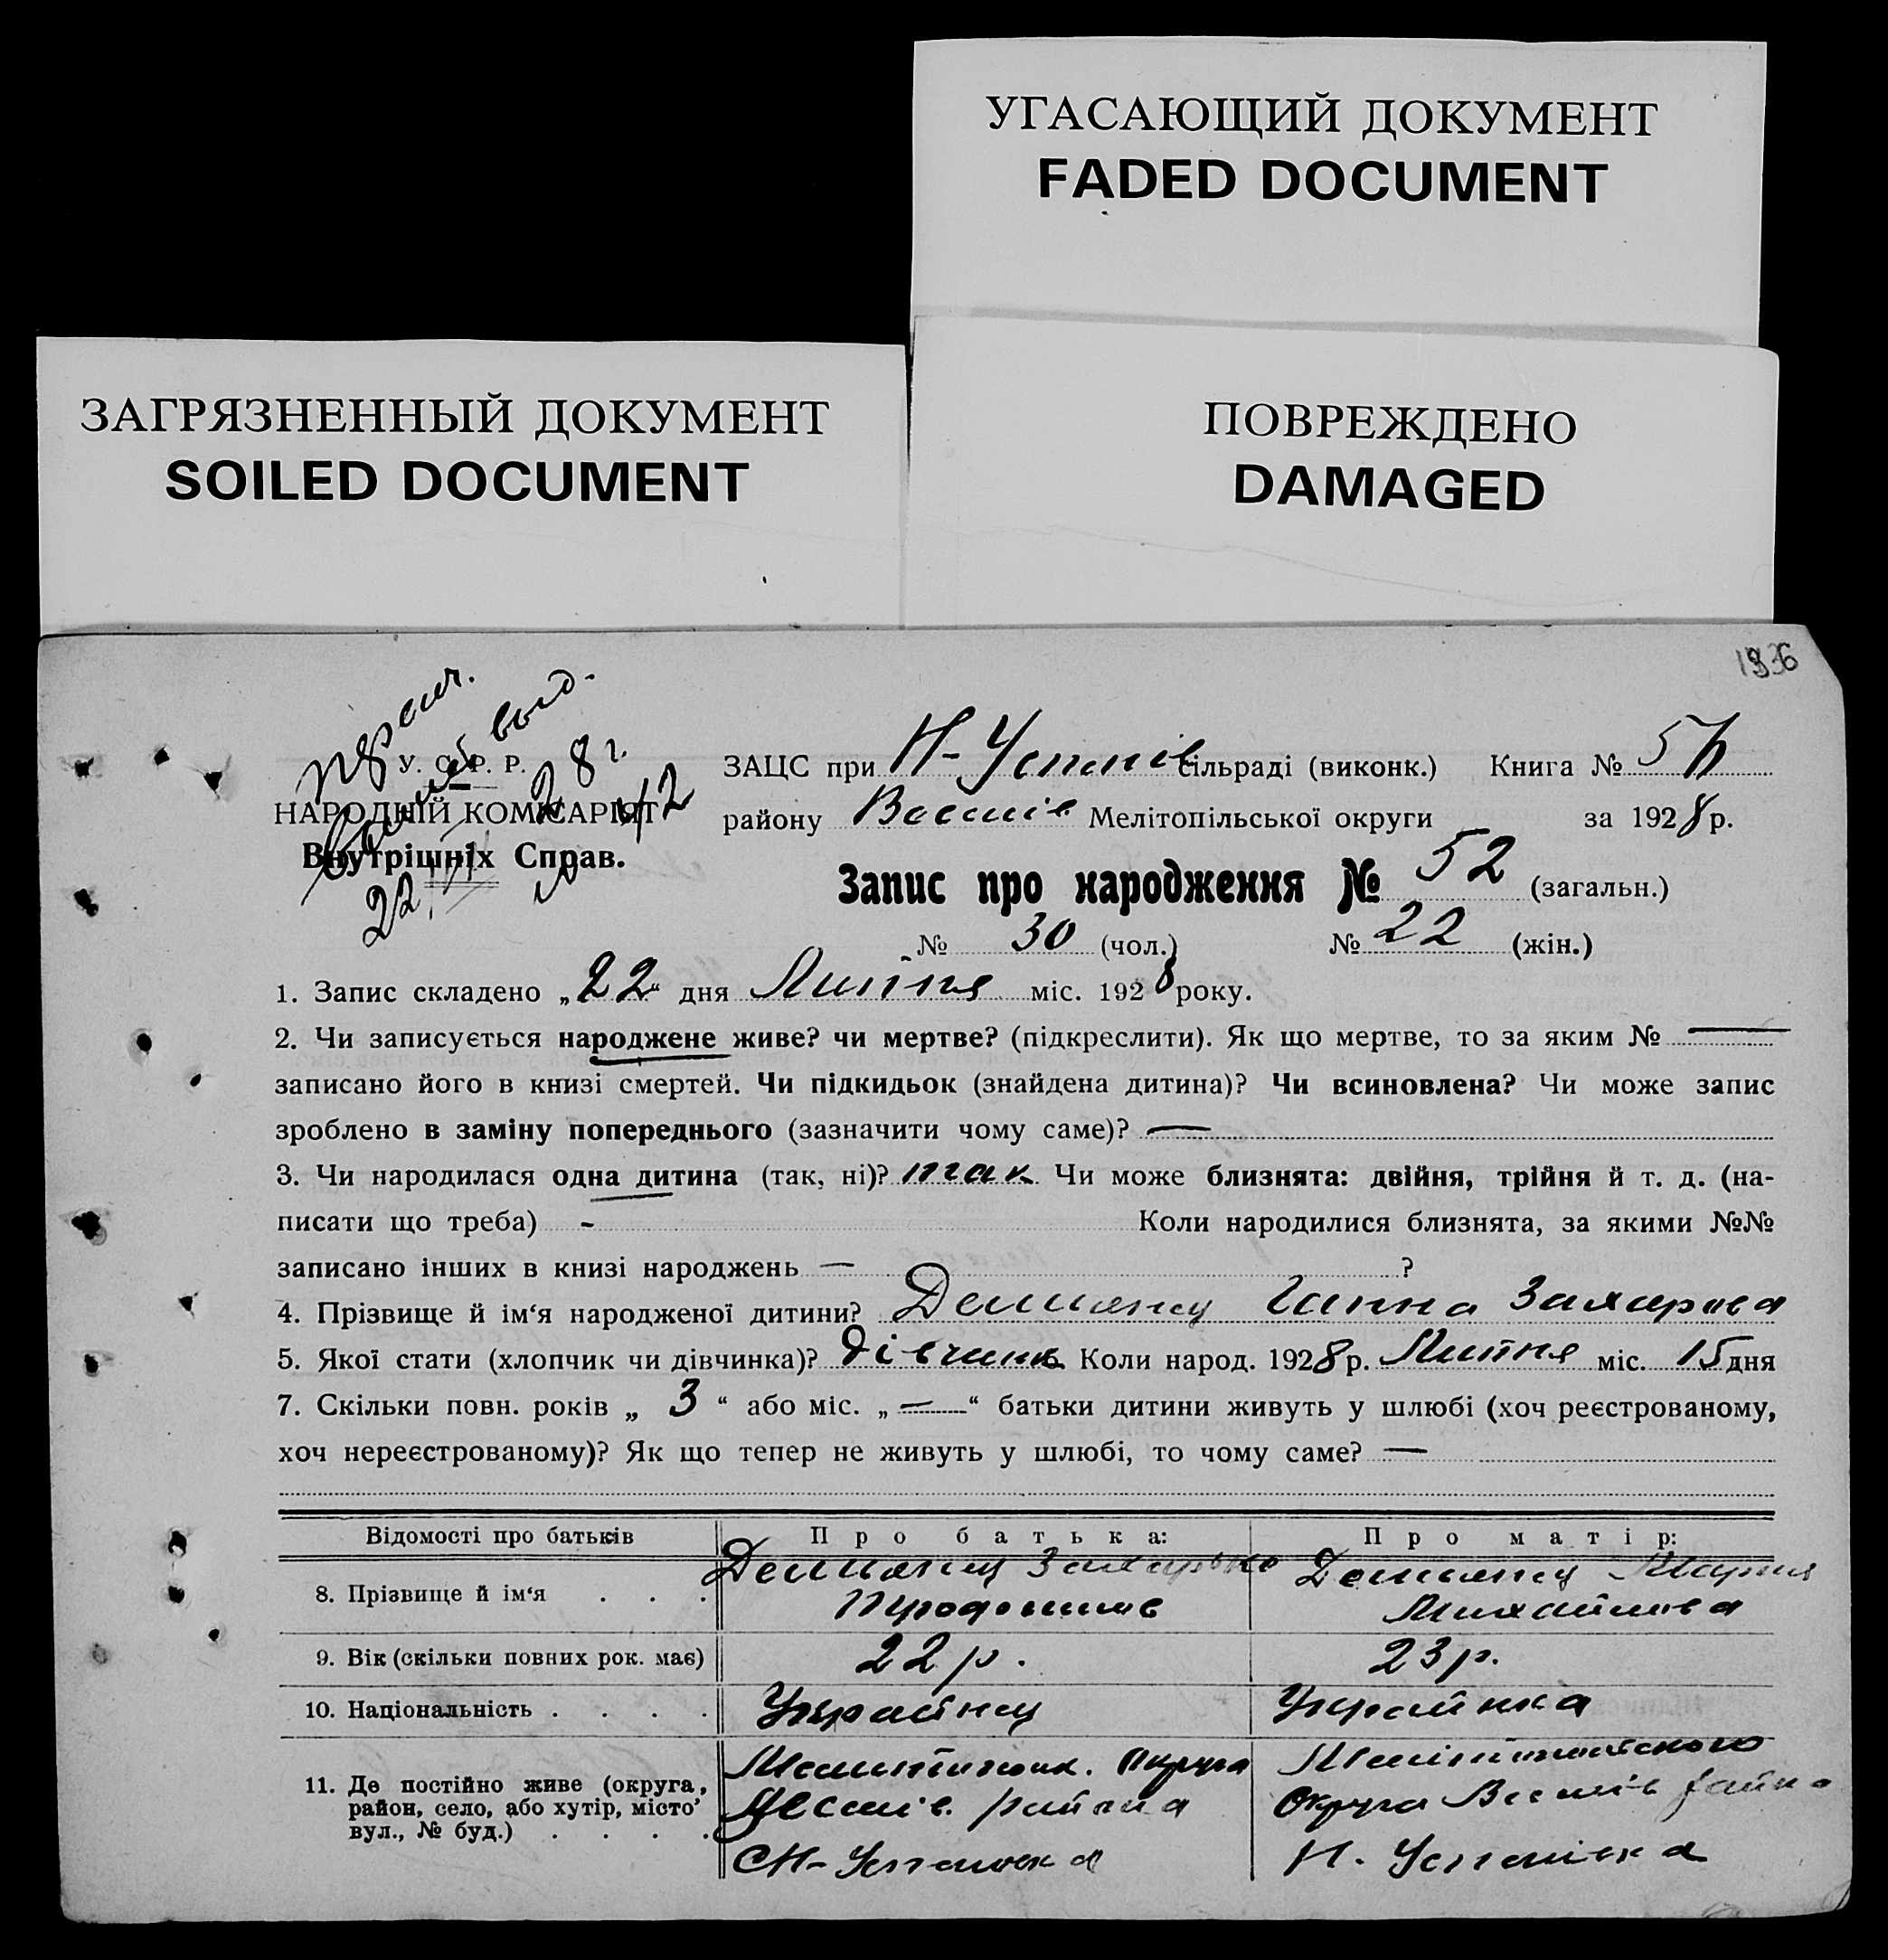 УГАСАЮЩИЙ ДОКУМЕНТ
FADED DOCUMENT
ЗАГРЯЗНЕННЫЙ ДОКУМЕНТ
SOILED DOCUMENT
ПОВРЕЖДЕНО
DAMAGED
У. С. Р. Р.
НАРОДНІЙ КОМІСАРІЯТ
Внутрішніх Справ.
28 г.
22
ЗАЦС при Н-Успенів сільраді (виконк.) Книга №
району Весел​ів Мелітопільської округи за 1928 р.
Запис про народження № 52 (загальн.)
№ 30 (чол.) № 22 (жін.)
1. Запис складено „22“ дня Липня міс. 1928 року.
2. Чи записується народжене живе? чи мертве? (підкреслити). Як що мертве, то за яким № —
записано його в книзі смертей. Чи підкидьок (знайдена дитина)? Чи всиновлена? Чи може запис
зроблено в заміну попереднього (зазначити чому саме)? —
3. Чи народилася одна дитина (так, ні)? так Чи може близнята: двійня, трійня й т. д. (на-
писати що треба) - Коли народилися близнята, за якими №№
записано інших в книзі народжень — ?
4. Прізвище й ім‘я народженої дитини? Демьянец Ганна Захарова
5. Якої стати (хлопчик чи дівчинка)? дівчинка Коли народ. 1928 р. Липня міс. 15 дня
7. Скільки повн. років „ 3 “ або міс. „ — “ батьки дитини живуть у шлюбі (хоч реєстрованому,
хоч нереєстрованому)? Як що тепер не живуть у шлюбі, то чому саме? —
Відомості про батьків Про батька: Про матір:
8. Прізвище й ім‘я . . . Демьянец Захарько Демьянец Мария
Михайлова
9. Вік (скільки повних рок. має) 22 р. 23 р.
10. Національність . . . . Українец Українка
11. Де постійно живе (округа, район, село, або хутір, місто, вул., № буд.) . . . .
Мелитопольск. округа Мелітопільського
Веселів. района Округа Веселів района
С Н-Успеновка Н. Успенівка